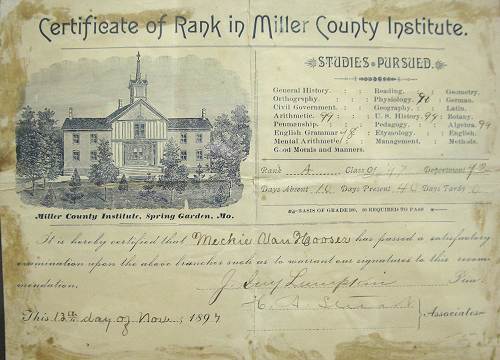 Certificate of Rank in Miller County Institute.
STUDIES PURSUED.
General History. : : Reading. : : Geometry.
Orthography. : : Physiology. 90 : German.
Civil Government. : : Geography. : : Latin.
Arithmetic. 99 : : U. S. History. 99 : Botany.
Penmanship. : : Pedagogy. : : Algebra. 99
English Grammar : : Etymology. : : English.
Mental Arithmetic : : Management. : : Methods.
Good Morals and Manners.
Rank A Class Of 97 Department
Days Absent 16 Days Present 46 Days Tardy 0
BASIS OF GRADE 100, REQUIRED TO PASS
Miller County Institute, Spring Garden, Mo.
It is hereby certified that Meckie Van Hooser has passed a satisfactory
examination upon the above branches such as to warrant our signatures to this recom
mendation.
J. Guy Lumpkin Prin.
H. A. Stewart
This 13th day of Nov. 1897
Associates